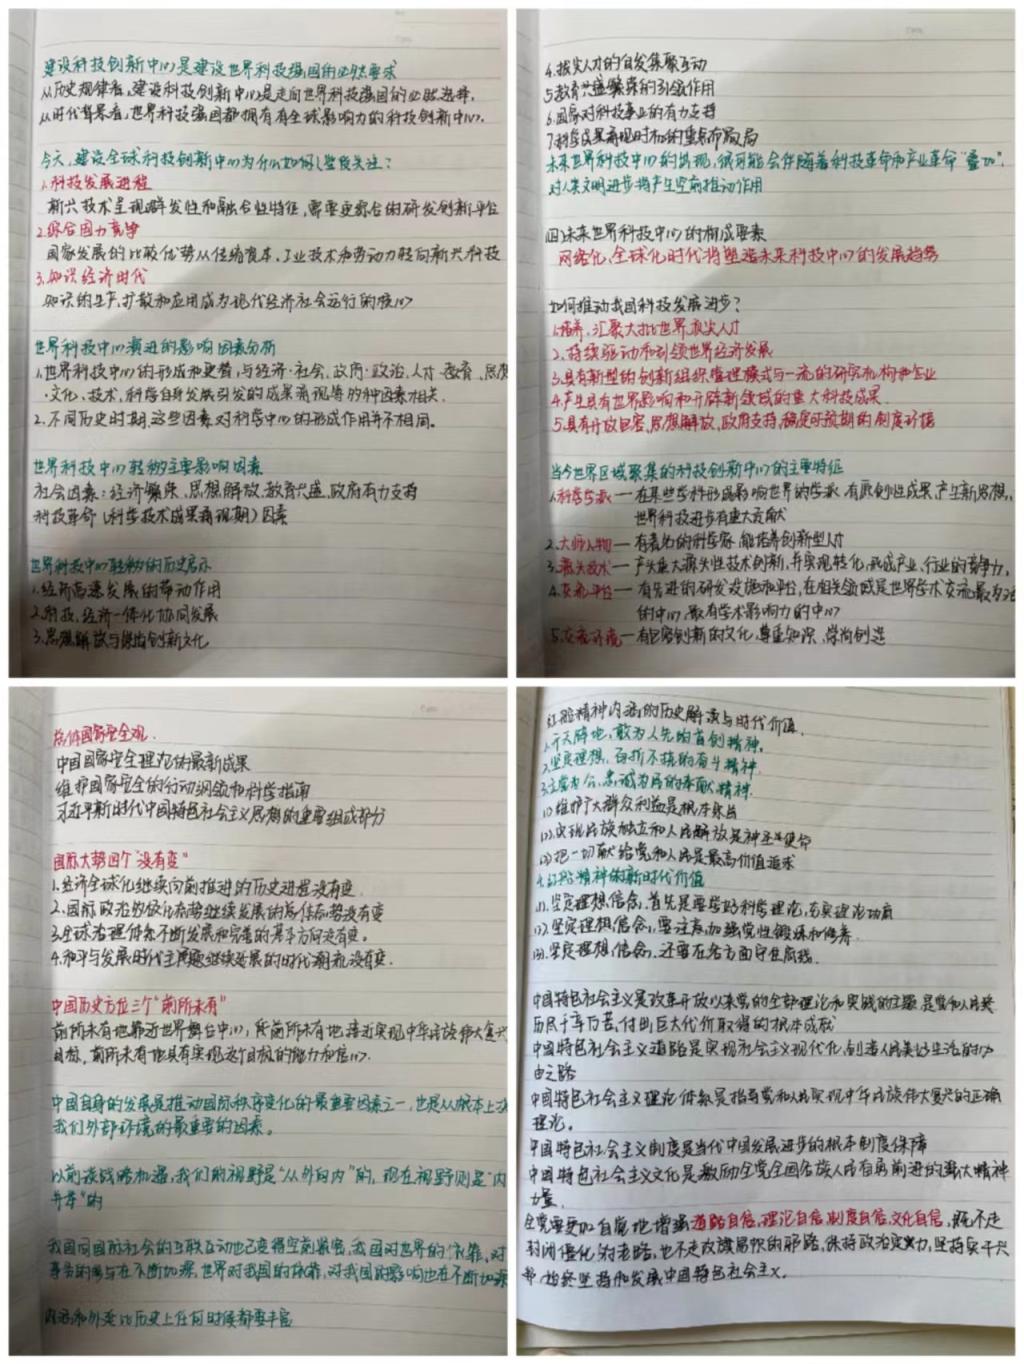 建设科技创新中心是建设世界科技强国的必然要求
从历史规律看,建设科技创新中心是走向世界科技强国的必然选择,
从时代背景看,世界科技强国都拥有有全球影响力的科技创新中心.
今天,建设全球科技创新中心为什么如何
1.科技发展进程
新兴技术呈现群发性和融合性特征,需要更综合的研发创新平台
2.综合国力竞争
国家发展的比较优势从传统资本、工业技术和劳动力转向新兴科技
3.知识经济时代
知识的生产,扩散和应用成为现代经济社会运行的核心
世界科技中心演进的影响因素分析
1.世界科技中心的形成和更替,与经济·社会、政府·政治、人才·教育、思
·文化、技术,科学自身发展引发的成果涌现等的种因素相关.
2.不同历史时期,这些因素对科学中心的形成作用并不相同。
世界科技中心转移主要影响因素
社会因素:经济繁荣、思想解放、教育兴盛、政府有力支持
科技革命(科学技术成果涌现期)因素
世界科技中心转移的历史启示
1.经济高速发展的带动作用
2.科技、经济一体化协同发展
3.思想解放与创新文化
4.拔尖人才的自发集聚互动
5.教育兴盛繁荣的引领作用
6.国家对科技事业的有力支持
7.科学成果涌现时机的重点布局
未来世界科技中心的出现,很可能会伴随着科技革命和产业革命"叠加",
对人类文明进步将产生空前推动作用
四、未来世界科技中心的构成要素
网络化、全球化时代将塑造未来科技中心的发展趋势
如何推动我国科技发展进步?
1.培养、汇聚大批世界拔尖人才
2.持续驱动和引领世界经济发展
3.具有新型的创新组织管理模式与一流的研究机构和企业
4.产生具有世界影响和开辟新领域的重大科技成果.
5.具有开放包容,思想解放,政府支持,稳定可预期的制度环境
当今世界区域聚集的科技创新中心的主要特征
1.科学学派—在某些学科形成影响世界的学派,有原创性成果,产生新思想,
世界科技进步有重大贡献
2.大师人物—有著名的科学家,能培养创新型人才
3.源头技术—产生重大源头性技术创新,并实现转化,形成产业、行业的竞争力,
4.交流平台—有先进的研发设施和平台,在相关领域是世界学术交流最为活
的中心,最有学术影响力的中心
5.文化环境—有包容创新的文化,尊重知识、崇尚创造
总体国家安全观.
中国国家安全理论的最新成果
维护国家安全的行动纲领和科学指南
习近平新时代中国特色社会主义思想的重要组成部分
国际大势四个"没有变"
1.经济全球化继续向前推进的历史进程没有变.
2.国际政治多极化态势继续发展的总体态势没有变
3.全球治理体系不断发展和完善的基本方向没有变。
4.和平与发展时代主题继续延展的时代潮流没有变.
中国历史方位三个"前所未有"
前所未有地靠近世界舞台中心,前所未有地接近实现中华民族伟大复兴
目标,前所未有地具有实现这个目标的能力和信心.
中国自身的发展是推动国际秩序变化的最重要因素之一,也是从根本上决
我们外部环境的最重要的因素。
以前谈战略机遇,我们的视野是"从外向内"的,现在视野则是"内
外兼"的
我国同国际社会的互联互动也已变得空前紧密,我国对世界的依靠,对
事务的参与在不断加深,世界对我国的依靠,对我国的影响也在不断加深
内涵和外延比历史上任何时候都要丰富
红船精神内涵的历史解读与时代价值.
1.开天辟地,敢为人先的首创精神,
2.坚定理想、百折不挠的奋斗精神.
3.立党为公,忠诚为民的奉献精神.
(1).维护广大群众利益是根本宗旨
(2).实现民族独立和人民解放是神圣使命
(3).把一切献给党和人民是最高价值追求
4.红船精神的新时代价值
(1).坚定理想信念,首先是要学好科学理论,夯实理论功底
(2).坚定理想信念,要注意加强党性锻炼和修养.
(3).坚定理想信念,还要在各方面守住底线.
中国特色社会主义是改革开放以来党的全部理论和实践的主题,是党和人民
历尽千辛万苦、付出巨大代价取得的根本成就
中国特色社会主义道路是实现社会主义现代化,创造人民美好生活的必
由之路
中国特色社会主义理论体系是指导党和人民实现中华民族伟大复兴的正确
理论。
中国特色社会主义制度是当代中国发展进步的根本制度保障
中国特色社会主义文化是激励全党全国各族人民奋勇前进的强大精神
力量.
全党要更加自觉地增强道路自信,理论自信,制度自信,文化自信,既不走
封闭僵化的老路,也不走改旗易帜的邪路,保持政治定力,坚持实干兴
邦,始终坚持和发展中国特色社会主义.